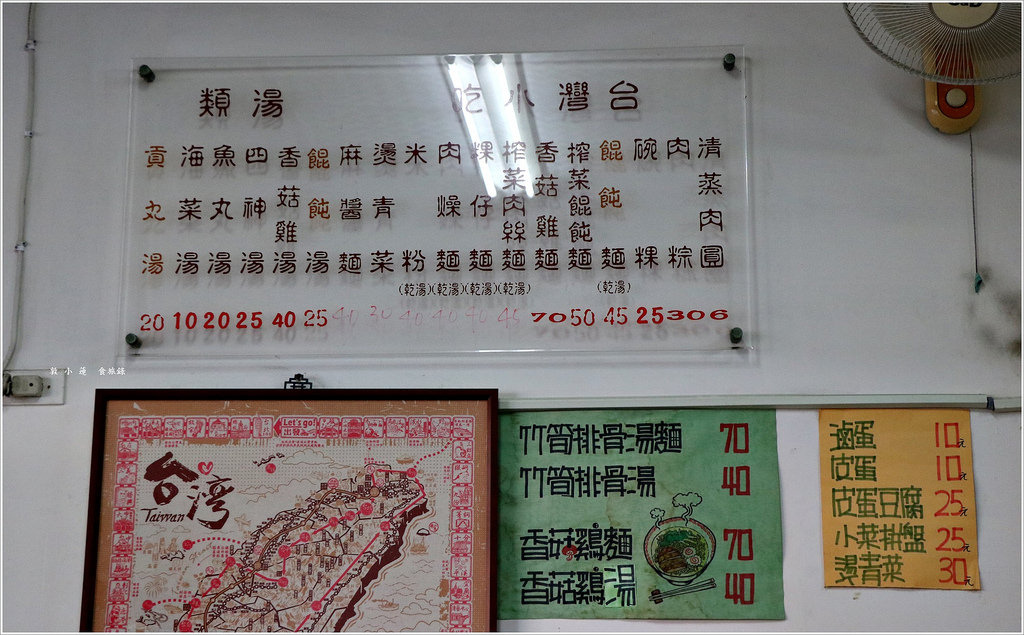 台灣小吃
清蒸肉圓 6
肉粽 30
碗粿 25
餛飩麵 (乾湯) 45
榨菜餛飩麵 50
香菇雞麵 70
榨菜肉絲麵 (乾湯) 45
粿仔麵 (乾湯) 40
肉燥麵 (乾湯) 40
米粉 (乾湯) 40
燙青菜 30
麻醬麵 40
湯類
餛飩湯 25
香菇雞湯 40
四神湯 25
魚丸湯 20
海菜湯 10
貢丸湯 20
敦小蓮 食旅錄
Let's go!
出發
台灣
Taiwan
竹筍排骨湯麵 70
竹筍排骨湯 40
香菇鷄麵 70
香菇鷄湯 40
滷蛋 10元
皮蛋 10元
皮蛋豆腐 25元
小菜拼盤 25元
燙青菜 30元